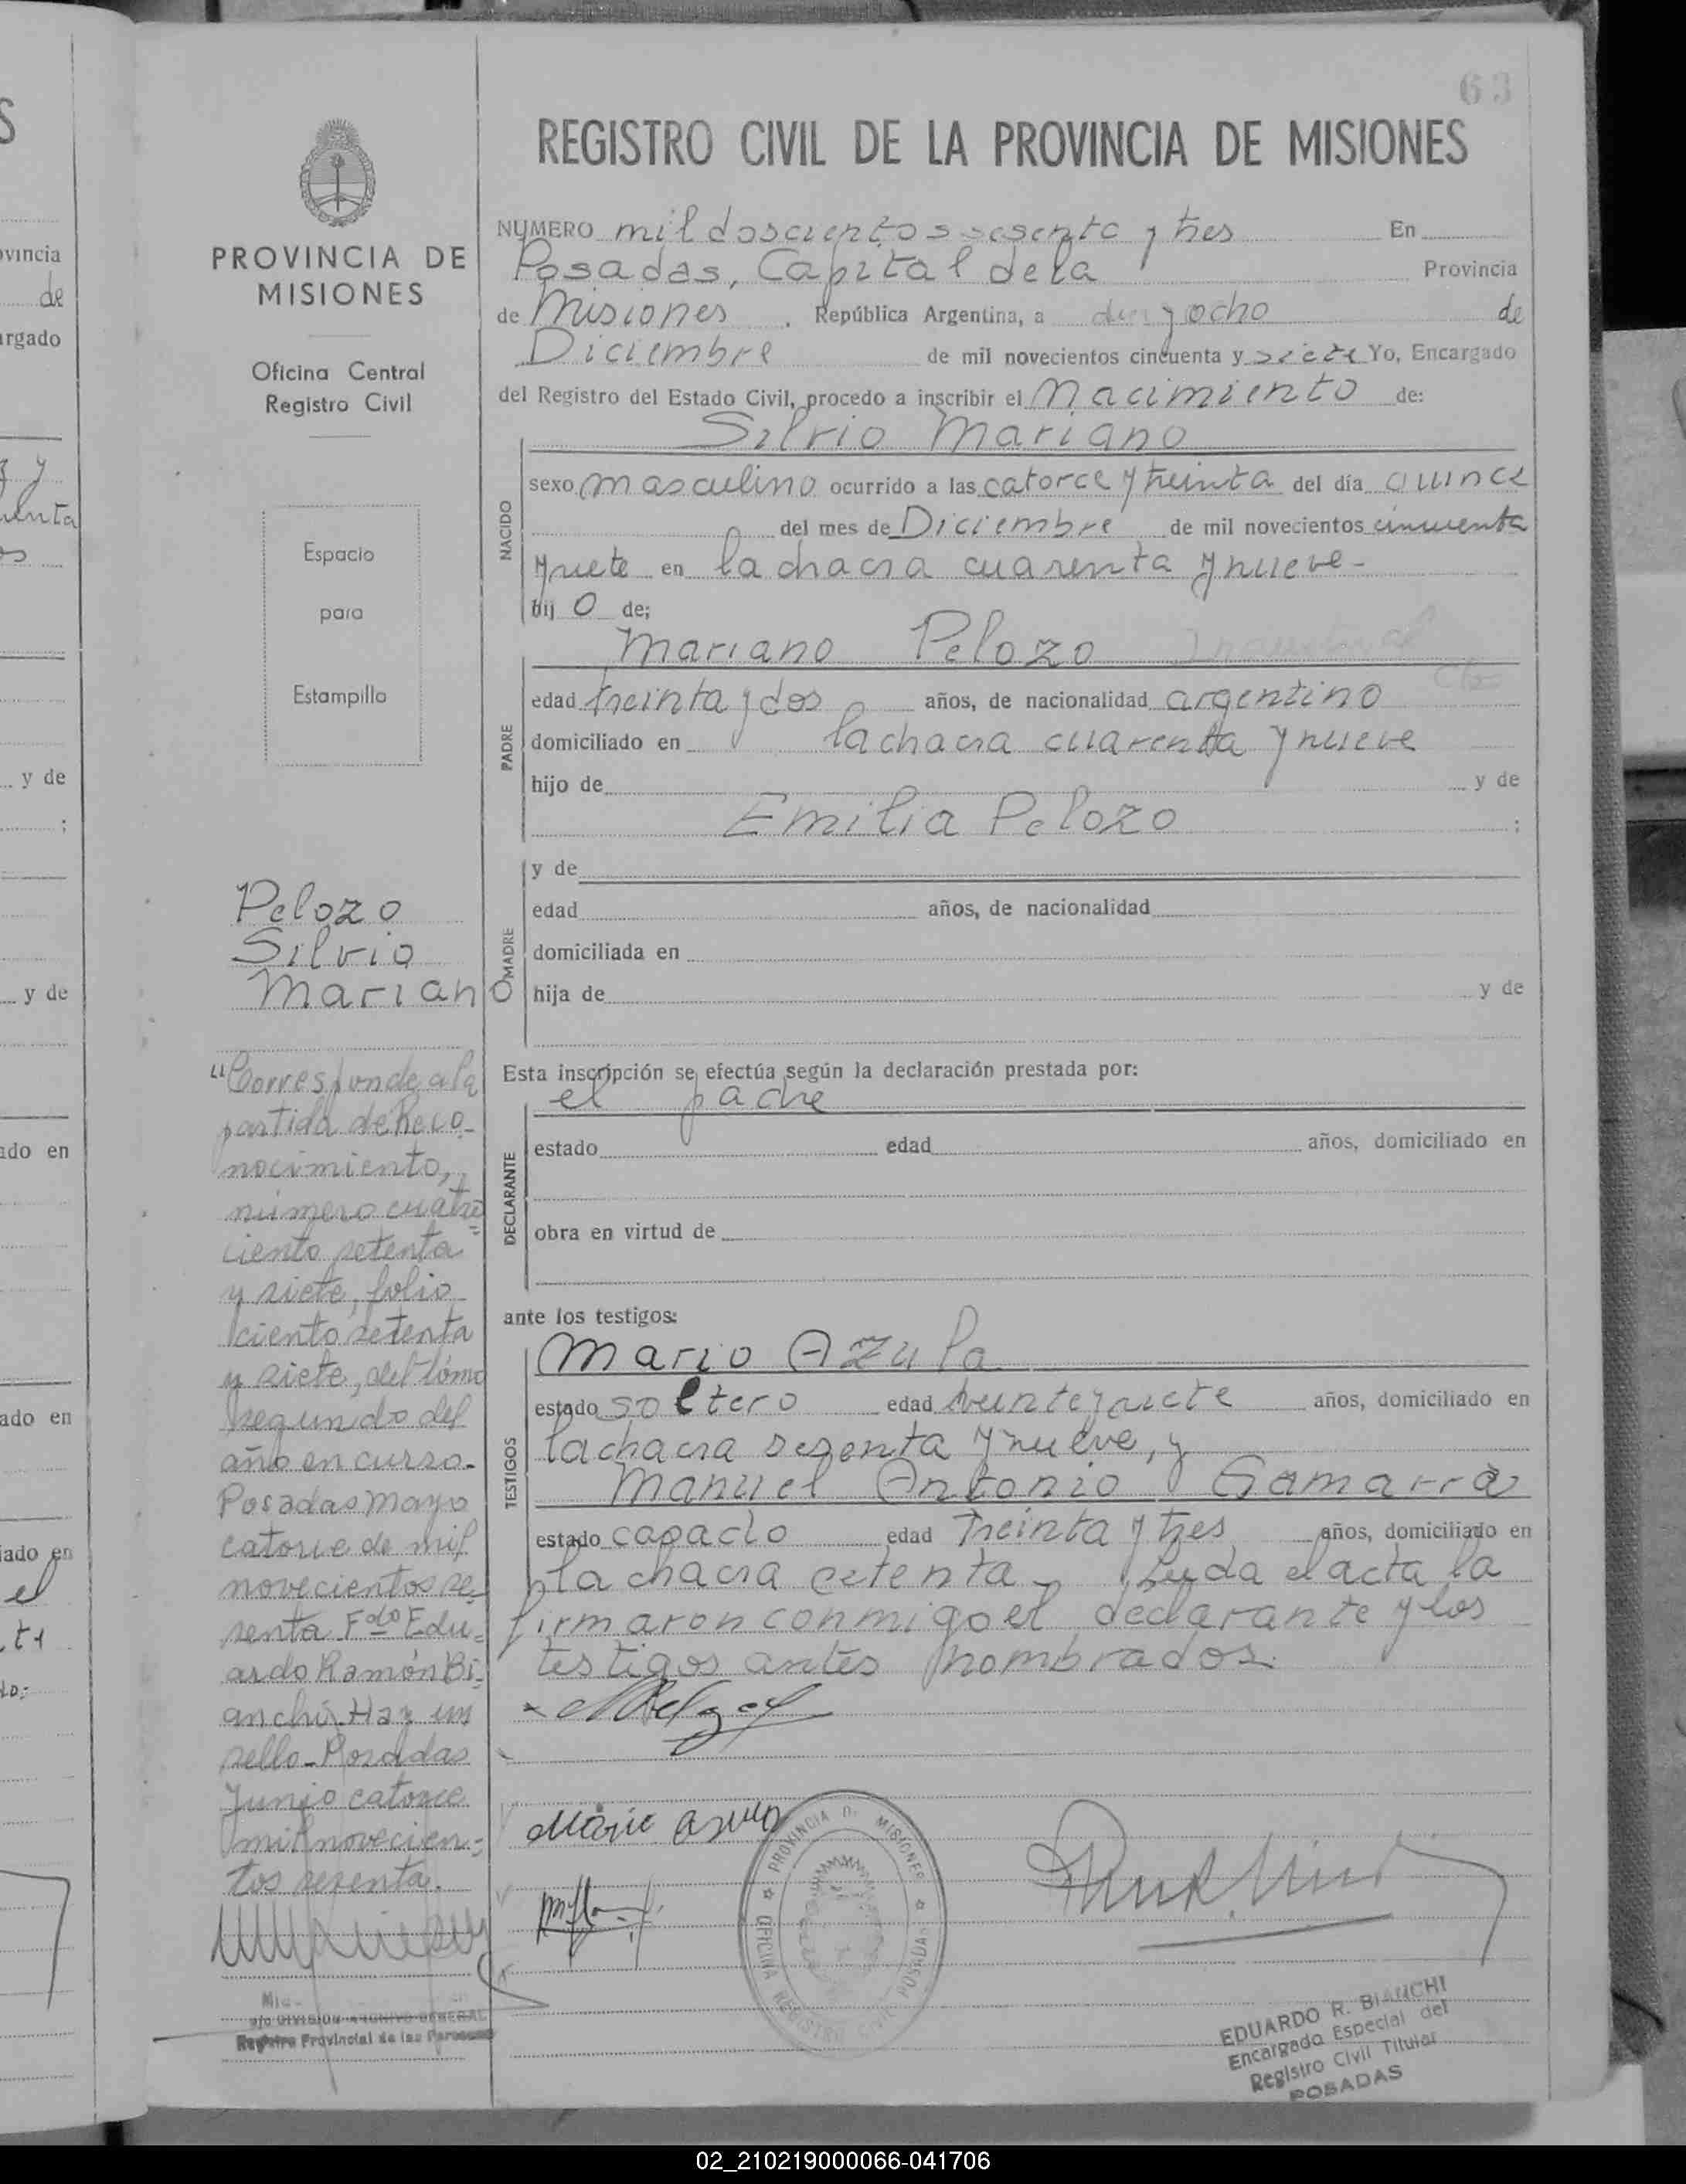 63
REGISTRO CIVIL DE LA PROVINCIA DE MISIONES
PROVINCIA DE
MISIONES
Oficina Central
Registro Civil
Espacio
para
Estampilla
NUMERO mil doscientos sesenta y tres En
Posadas, Capital de la Provincia
de Misiones, República Argentina, a diez y ocho de
Diciembre de mil novecientos cincuenta y siete Yo, Encargado
del Registro del Estado Civil, procedo a inscribir el Nacimiento de:
Silvio Mariano
NACIDO
sexo masculino ocurrido a las catorce y treinta del día quince
del mes de Diciembre de mil novecientos cincuenta
y siete en la chacra cuarenta y nueve-
hij o de;
Mariano Pelozo
PADRE
edad treinta y dos años, de nacionalidad argentino
domiciliado en la chacra cuarenta y nueve
hijo de y de
Emilia Pelozo ;
MADRE
y de
edad años, de nacionalidad
domiciliada en
hija de y de
Esta inscripción se efectúa según la declaración prestada por:
el padre
DECLARANTE
estado edad años, domiciliado en
obra en virtud de
ante los testigos:
Mario Azula
TESTIGOS
estado soltero edad veinte y siete años, domiciliado en
la chacra sesenta y nueve, y
Manuel Antonio Gamarra
estado casado edad Treinta y tres años, domiciliado en
la chacra setenta - Leida el acta la
firmaron conmigo el declarante y los
testigos antes nombrados.
Mario Azula
PROVINCIA D. MISIONES
OFICINA REGISTRO CIVIL POSADAS
EDUARDO R. BIANCHI
Encargado Especial del
Registro Civil Titular
POSADAS
Pelozo
Silvio
Mariano
"Corresponde a la
partida de Reco-
nocimiento,
número cuatro
ciento setenta
y siete, folio
ciento setenta
y siete, del tomo
segundo del
año en curso.
Posadas Mayo
catorce de mil
novecientos se-
senta Fdo Edu-
ardo Ramón Bi-
anchi. Hay un
sello - Posadas
Junio catorce
mil novecien-
tos sesenta.
DIVISION ARCHIVO GENERAL
Registro Provincial de las Personas
ovincia
de
argado
y de
;
y de
ado en
ado en
iado en
el
02_210219000066-041706